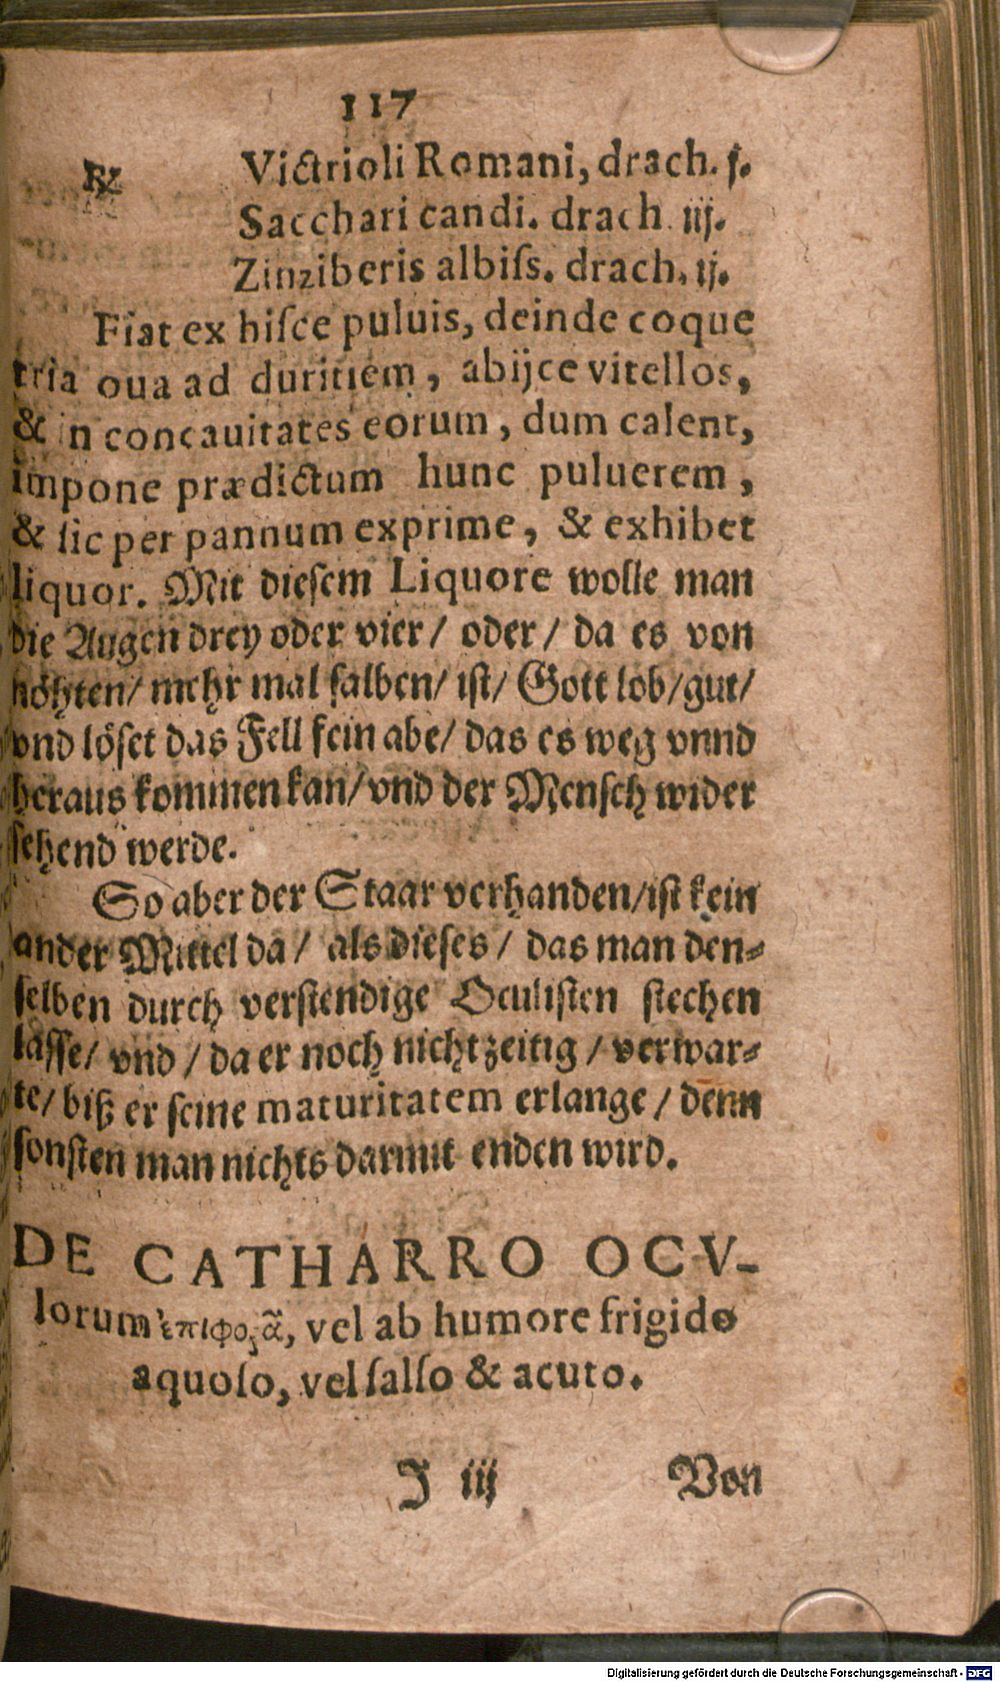 117
℞ Victrioli Romani, drach. ſ.
Sacchari candi. drach. iij.
Zinziberis albiſs. drach. ij.
Fiat ex hiſce puluis, deinde coque
tria oua ad duritiem, abijce vitellos,
& in concauitates eorum, dum calent,
impone prædictum hunc puluerem,
& ſic per pannum exprime, & exhibet
liquor. Mit dieſem Liquore wolle man
die Augen drey oder vier/ oder/ da es von
nöhten/ mehr mal ſalben/ iſt/ Gott lob/ gut/
vnd löſet das Fell fein abe/ das es weg vnnd
heraus kommen kan/ vnd der Menſch wider
ſehend werde.
So aber der Staar verhanden/ iſt kein
ander Mittel da/ als dieſes/ das man den-
ſelben durch verſtendige Oculiſten ſtechen
laſſe/ vnd/ da er noch nicht zeitig/ verwar-
te/ biß er ſeine maturitatem erlange/ denn
ſonſten man nichts darmit enden wird.
DE CATHARRO OCV-
lorum ἐπιφορᾶ, vel ab humore frigido
aquoſo, vel ſalſo & acuto.
J iij Von
Digitalisierung gefördert durch die Deutsche Forschungsgemeinschaft - DFG